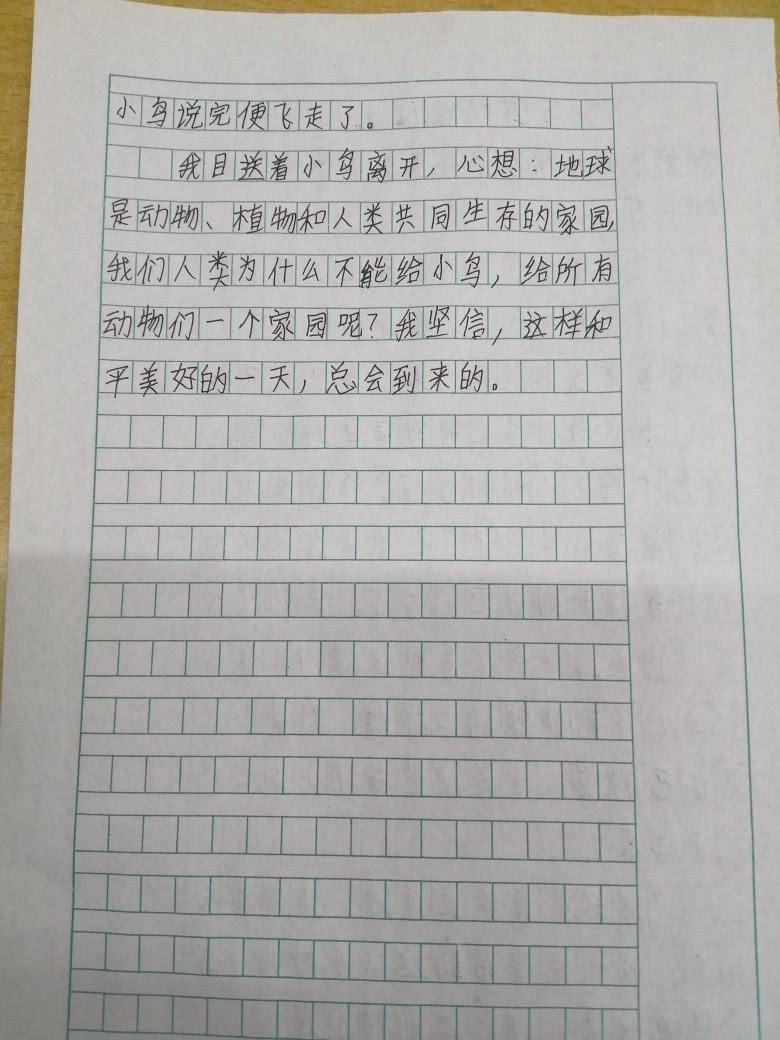 小鸟说完便飞走了。
我目送着小鸟离开，心想：地球
是动物、植物和人类共同生存的家园，
我们人类为什么不能给小鸟，给所有
动物们一个家园呢？我坚信，这样和
平美好的一天，总会到来的。